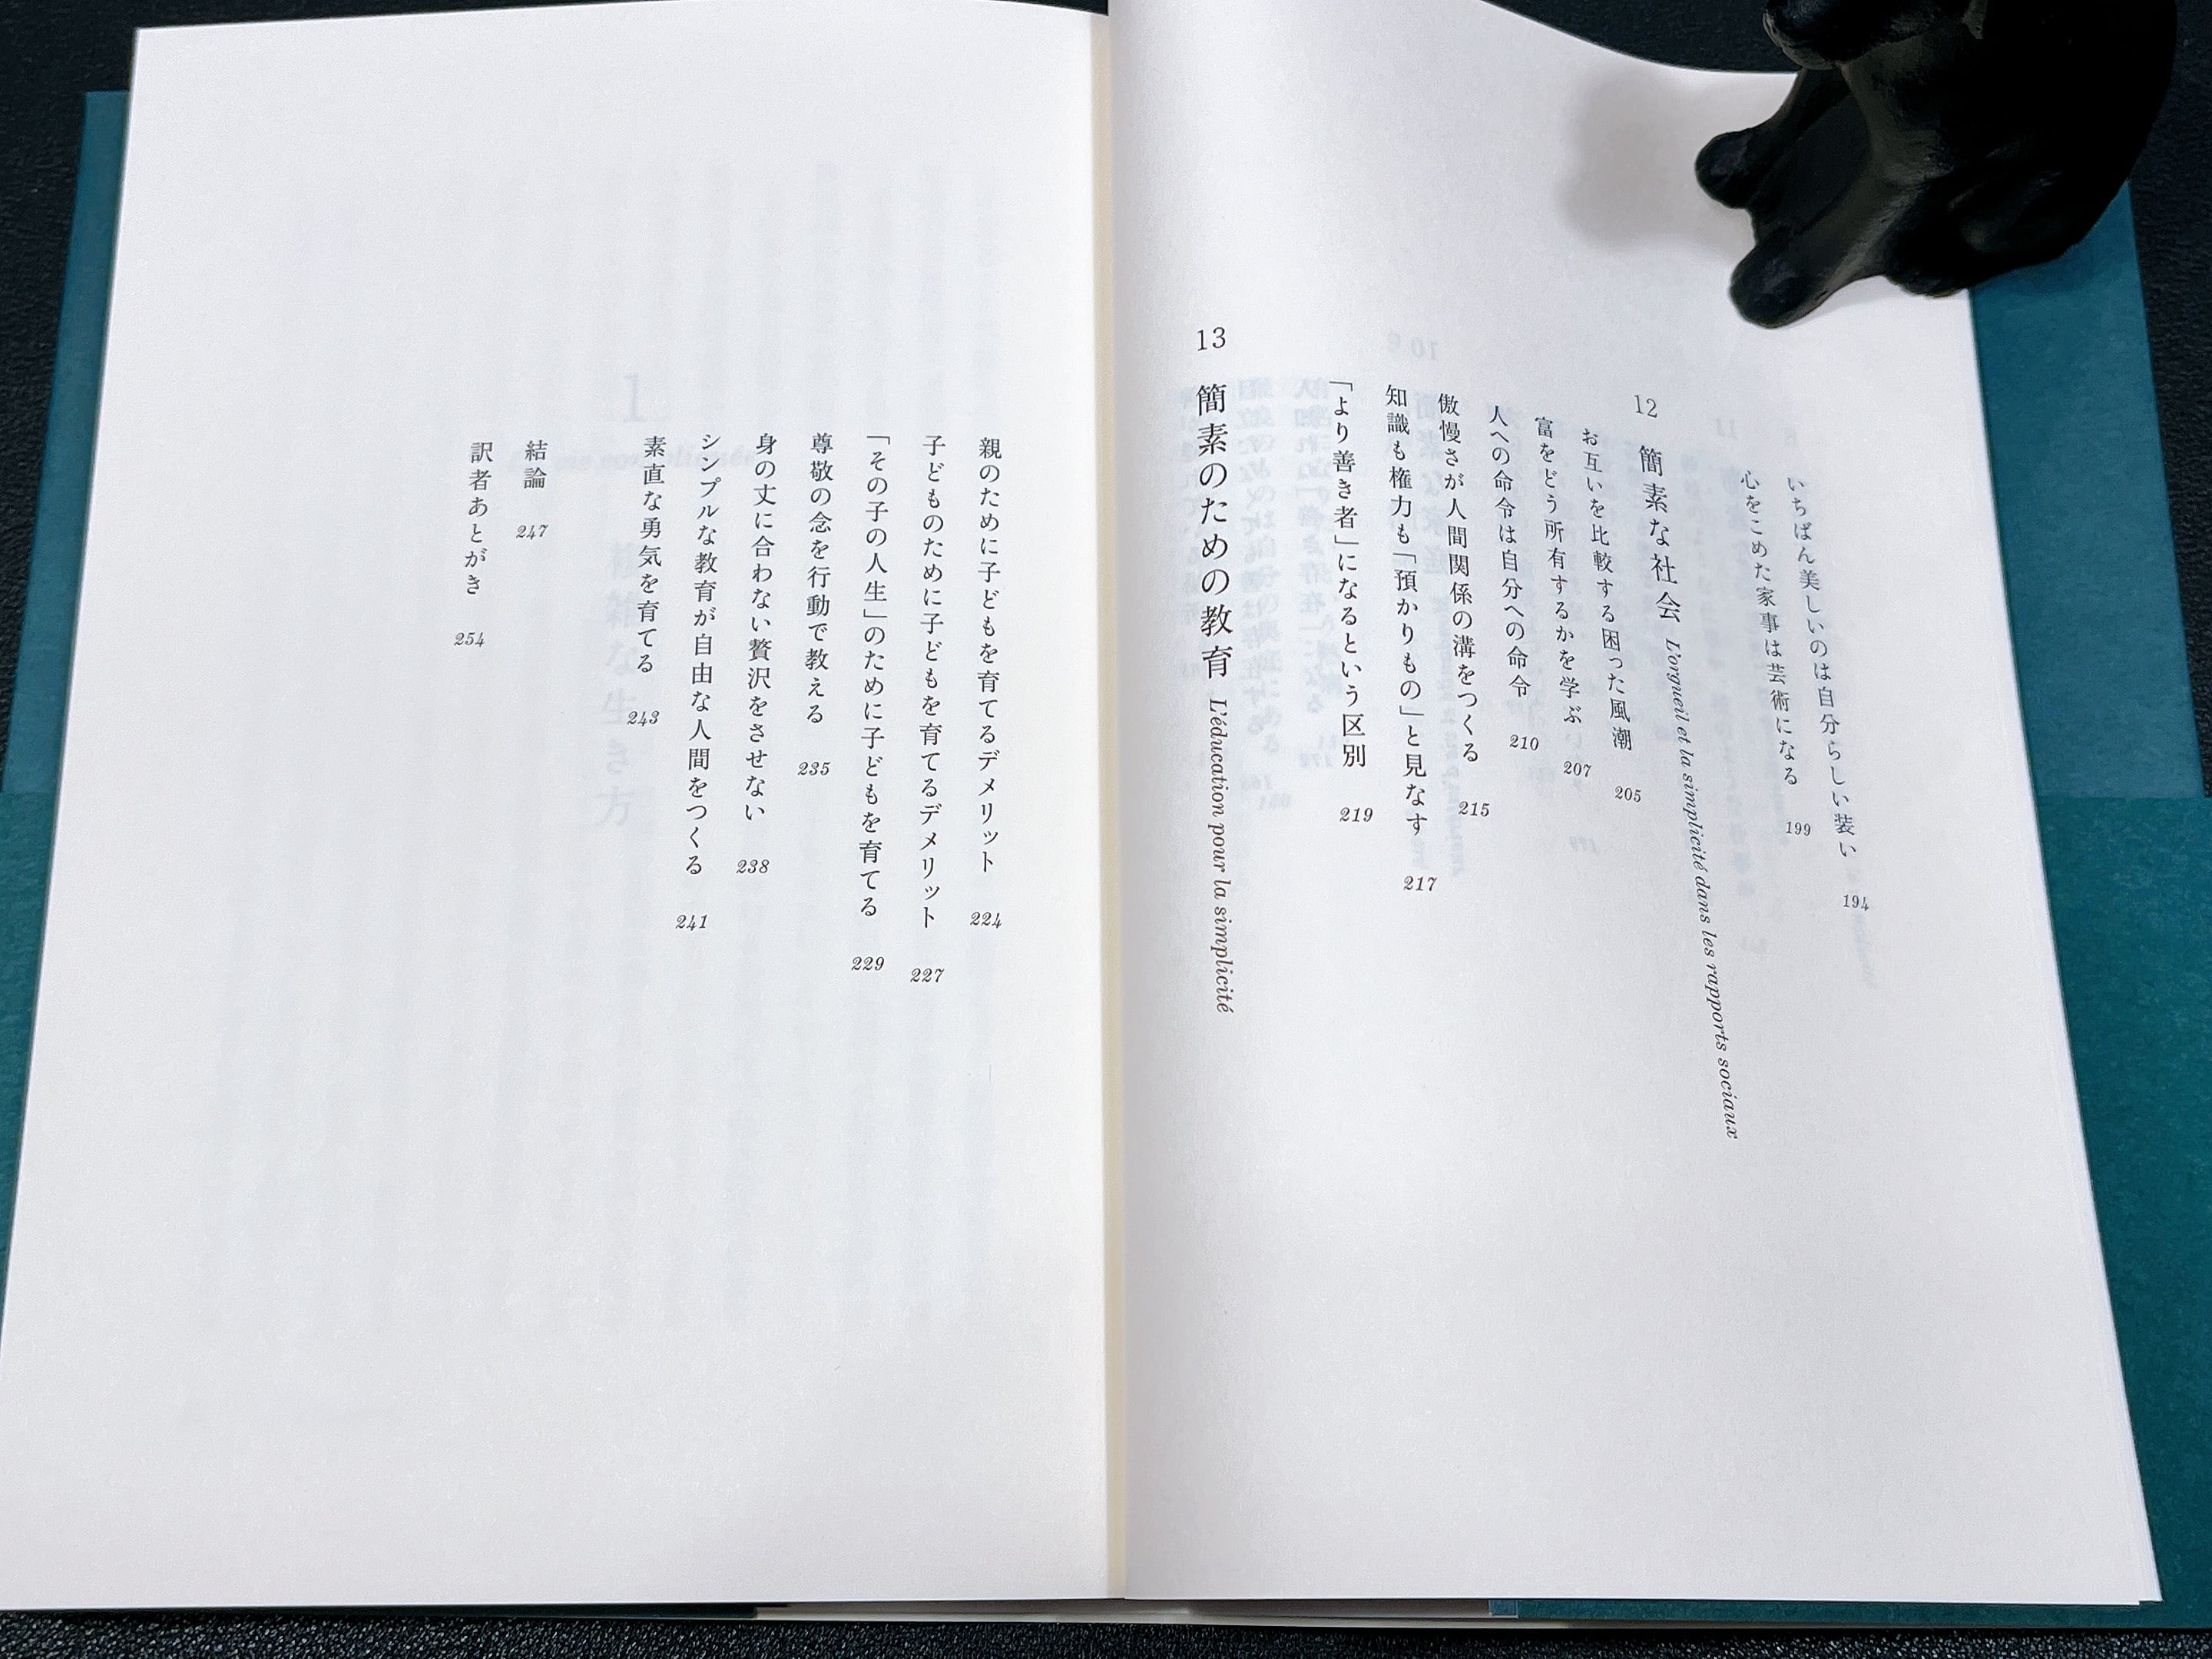 いちばん美しいのは自分らしい装い 194
心をこめた家事は芸術になる 199
12 簡素な社会 L'orgueil et la simplicité dans les rapports sociaux
お互いを比較する困った風潮 205
富をどう所有するかを学ぶ 207
人への命令は自分への命令 210
傲慢さが人間関係の溝をつくる 215
知識も権力も「預かりもの」と見なす 217
「より善き者」になるという区別 219
13 簡素のための教育 L'éducation pour la simplicité
親のために子どもを育てるデメリット 224
子どものために子どもを育てるデメリット 227
「その子の人生」のために子どもを育てる 229
尊敬の念を行動で教える 235
身の丈に合わない贅沢をさせない 238
シンプルな教育が自由な人間をつくる 241
素直な勇気を育てる 243
結論 247
訳者あとがき 254